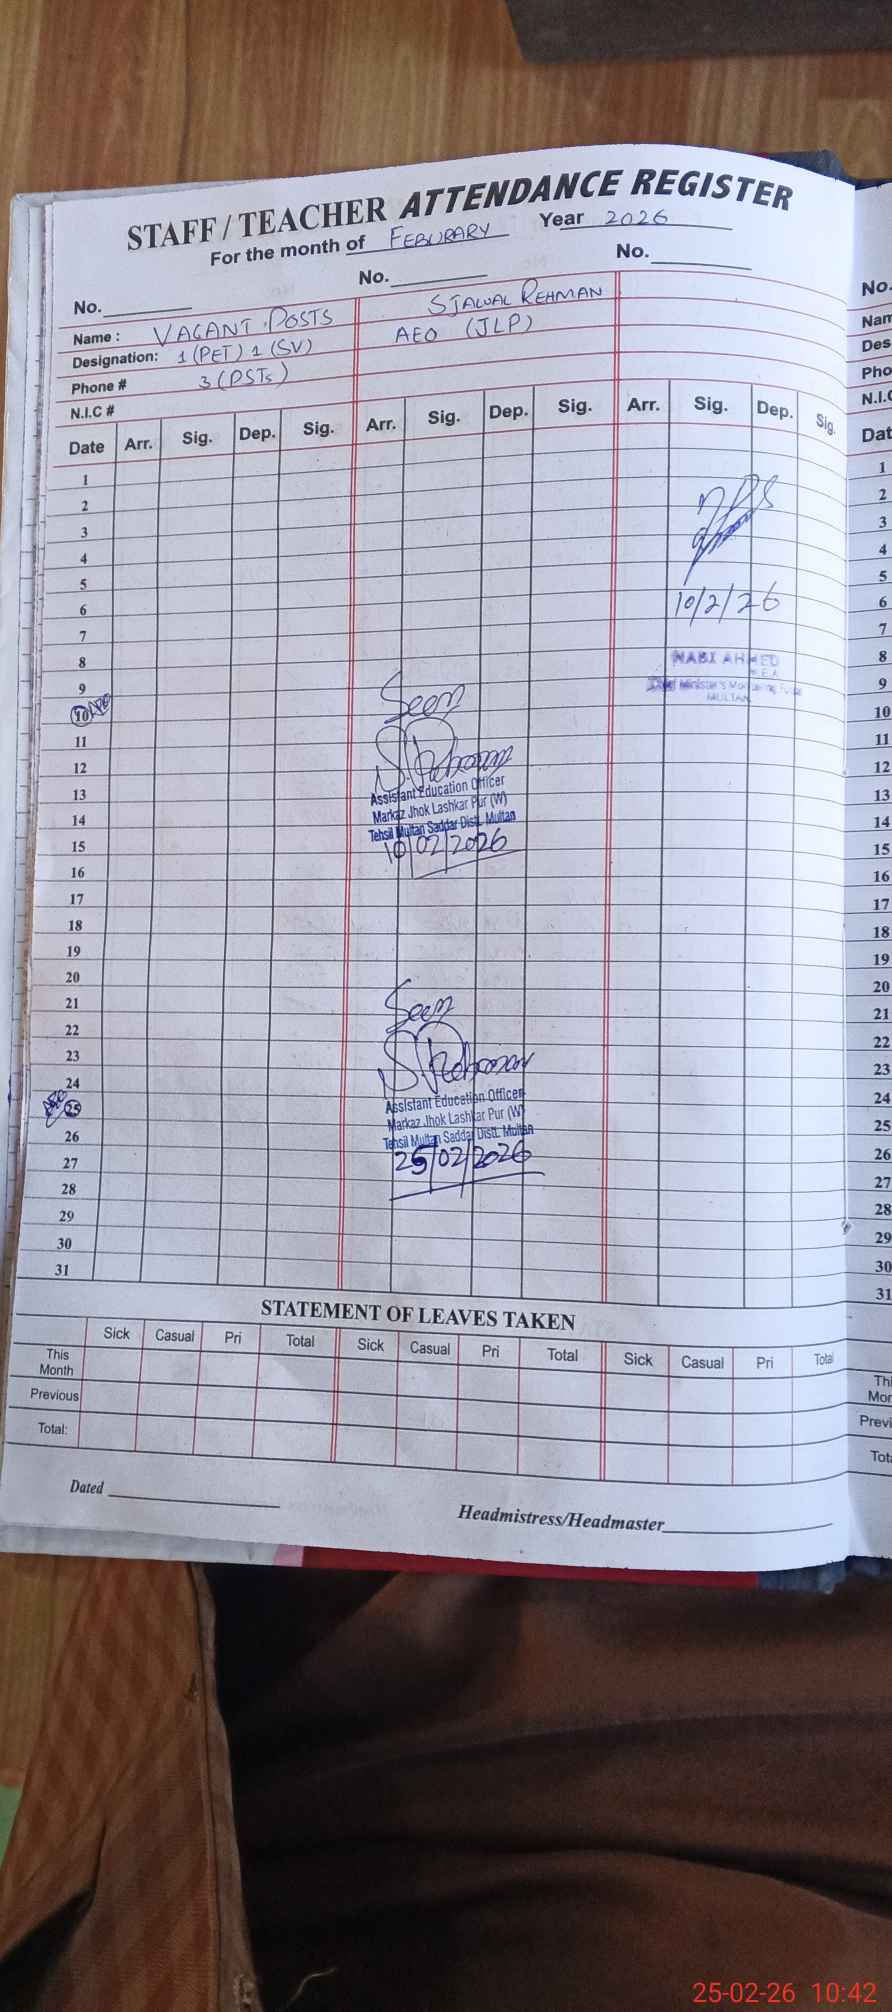 STAFF / TEACHER ATTENDANCE REGISTER
For the month of FEBURARY Year 2026
No. No. No.
Name : VACANT POSTS SJAWAL REHMAN
Designation: 1 (PET) 1 (SV) AEO (JLP)
Phone # 3 (PSTs)
N.I.C #
Date Arr. Sig. Dep. Sig. Arr. Sig. Dep. Sig. Arr. Sig. Dep. Sig.
1
2
3
4
5
6
10/2/26
7
8
NABI AHMED
9
MULTAN
10 AEO
Seen
11
12
S.Rehman
13
Assistant Education Officer
14
Markaz Jhok Lashkar Pur (W)
Tehsil Multan Saddar Distt. Multan
15
10/02/2026
16
17
18
19
20
21
Seen
22
23
S.Rehman
24
AEO 25
Assistant Education Officer
Markaz Jhok Lashkar Pur (W)
26
Tehsil Multan Saddar Distt. Multan
27
25/02/2026
28
29
30
31
STATEMENT OF LEAVES TAKEN
Sick Casual Pri Total Sick Casual Pri Total Sick Casual Pri Total
This Month
Previous
Total:
Dated
Headmistress/Headmaster
No.
Nam
Des
Pho
N.I.C
Dat
1
2
3
4
5
6
7
8
9
10
11
12
13
14
15
16
17
18
19
20
21
22
23
24
25
26
27
28
29
30
31
Thi
Mor
Previ
Tot
25-02-26 10:42